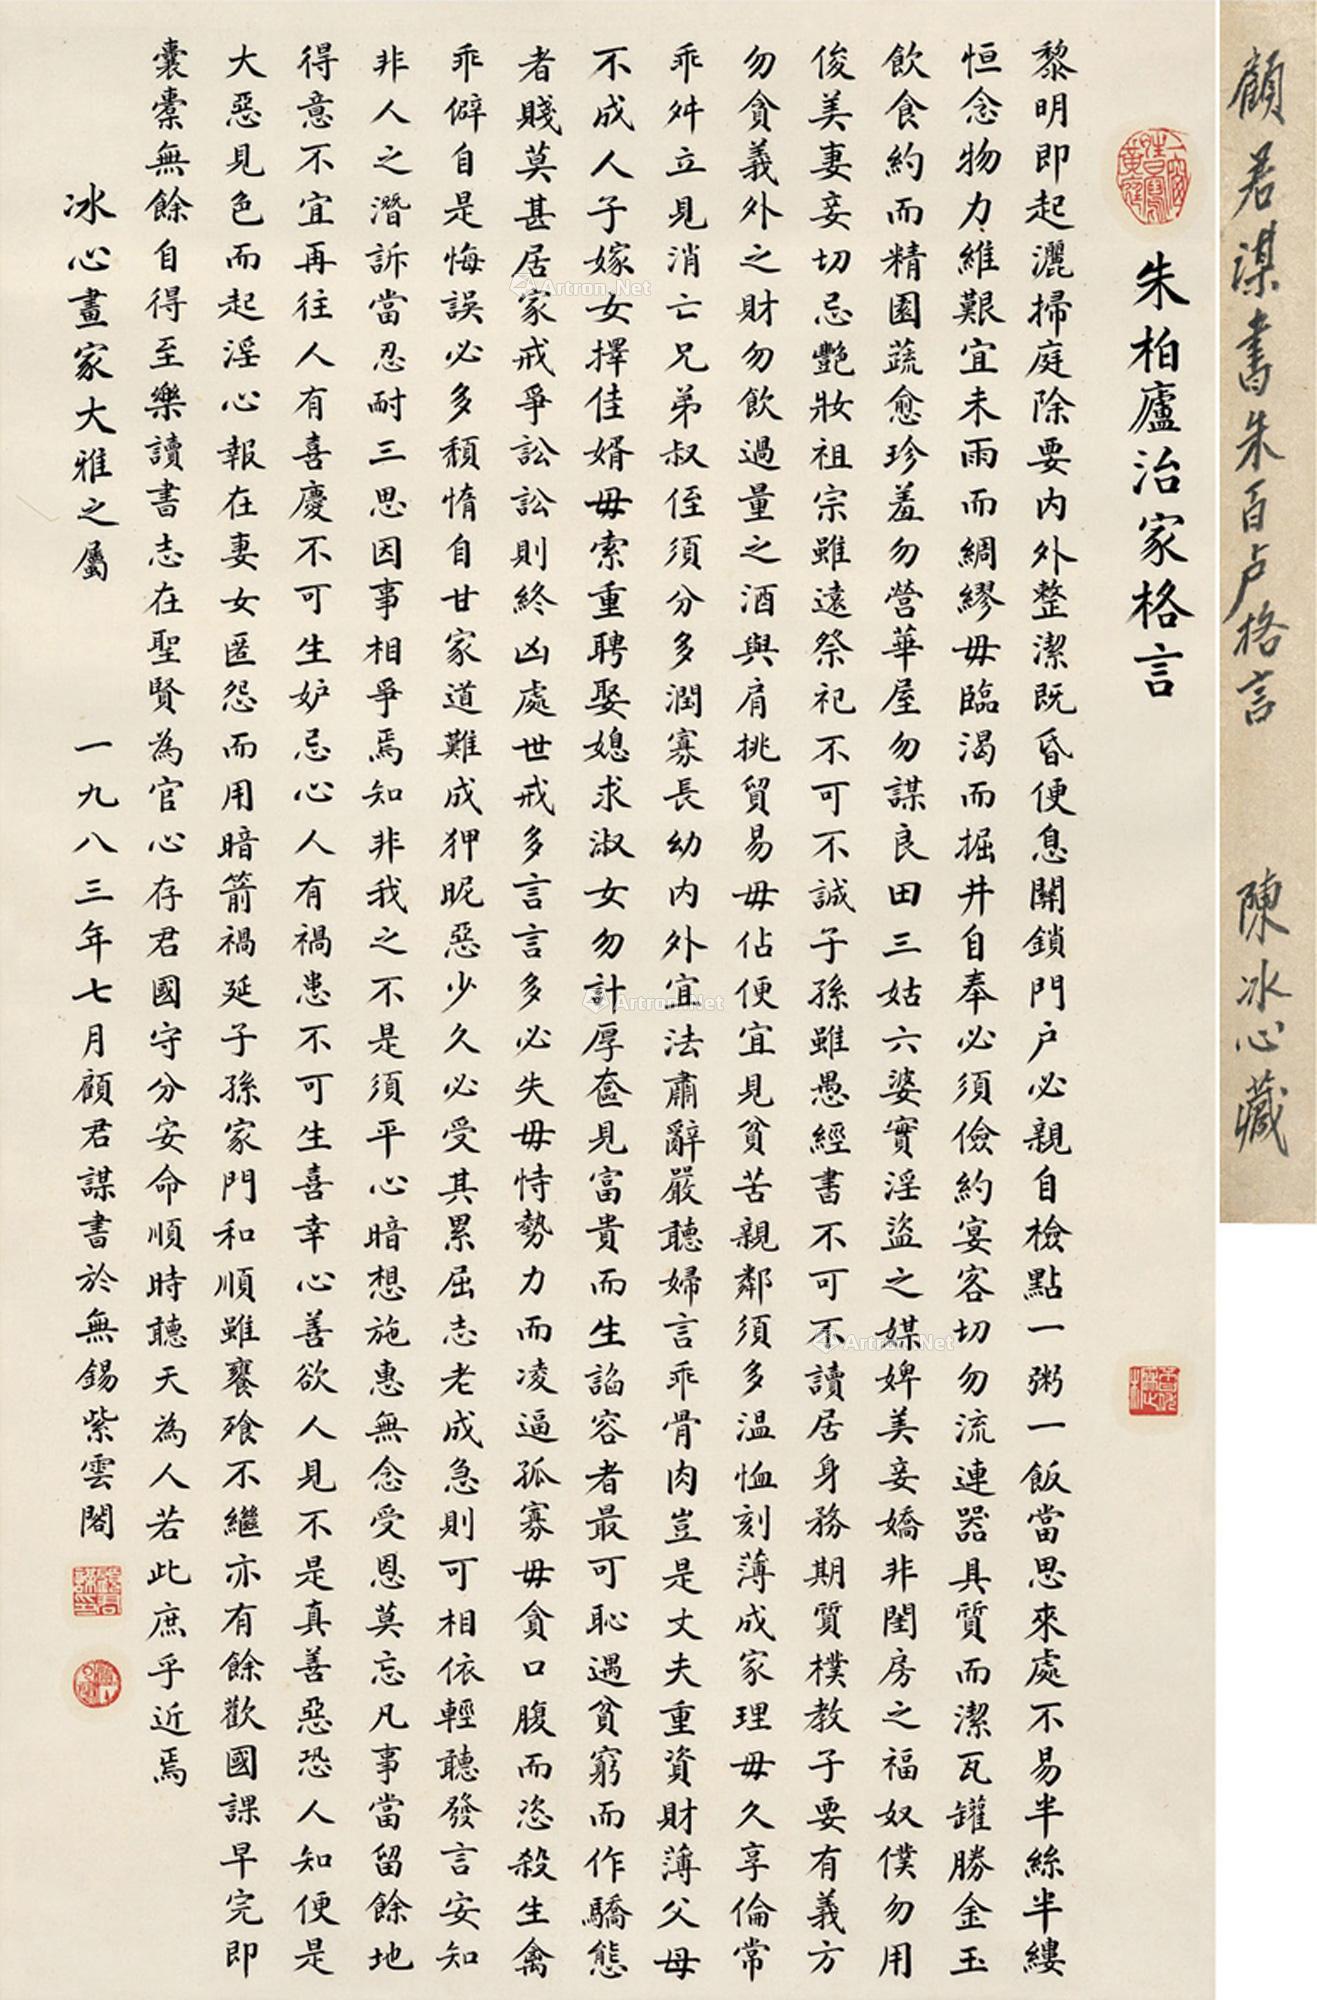 顧君謀書朱百卢格言 陳冰心藏
朱柏廬治家格言
黎明即起灑掃庭除要内外整潔既昏便息關鎖門户必親自檢點一粥一飯當思來處不易半絲半縷
恒念物力維艱宜未雨而綢繆毋臨渴而掘井自奉必須儉約宴客切勿流連器具質而潔瓦罐勝金玉
飲食約而精園蔬愈珍羞勿營華屋勿謀良田三姑六婆實淫盜之媒婢美妾嬌非閨房之福奴僕勿用
俊美妻妾切忌艷妝祖宗雖遠祭祀不可不誠子孫雖愚經書不可不讀居身務期質樸教子要有義方
勿貪義外之財勿飲過量之酒與肩挑貿易毋佔便宜見貧苦親鄰須多温恤刻薄成家理毋久享倫常
乖舛立見消亡兄弟叔侄須分多潤寡長幼内外宜法肅辭嚴聽婦言乖骨肉豈是丈夫重資財薄父母
不成人子嫁女擇佳婿毋索重聘娶媳求淑女勿計厚奩見富貴而生諂容者最可恥遇貧窮而作驕態
者賤莫甚居家戒爭訟訟則終凶處世戒多言言多必失毋恃勢力而凌逼孤寡毋貪口腹而恣殺生禽
乖僻自是悔誤必多頹惰自甘家道難成狎昵惡少久必受其累屈志老成急則可相依輕聽發言安知
非人之潛訴當忍耐三思因事相爭焉知非我之不是須平心暗想施惠無念受恩莫忘凡事當留餘地
得意不宜再往人有喜慶不可生妒忌心人有禍患不可生喜幸心善欲人見不是真善惡恐人知便是
大惡見色而起淫心報在妻女匿怨而用暗箭禍延子孫家門和順雖饔飧不繼亦有餘歡國課早完即
囊橐無餘自得至樂讀書志在聖賢為官心存君國守分安命順時聽天為人若此庶乎近焉
冰心畫家大雅之屬 一九八三年七月顧君謀書於無錫紫雲閣
Artron.Net
Artron.Net
Artron.Net